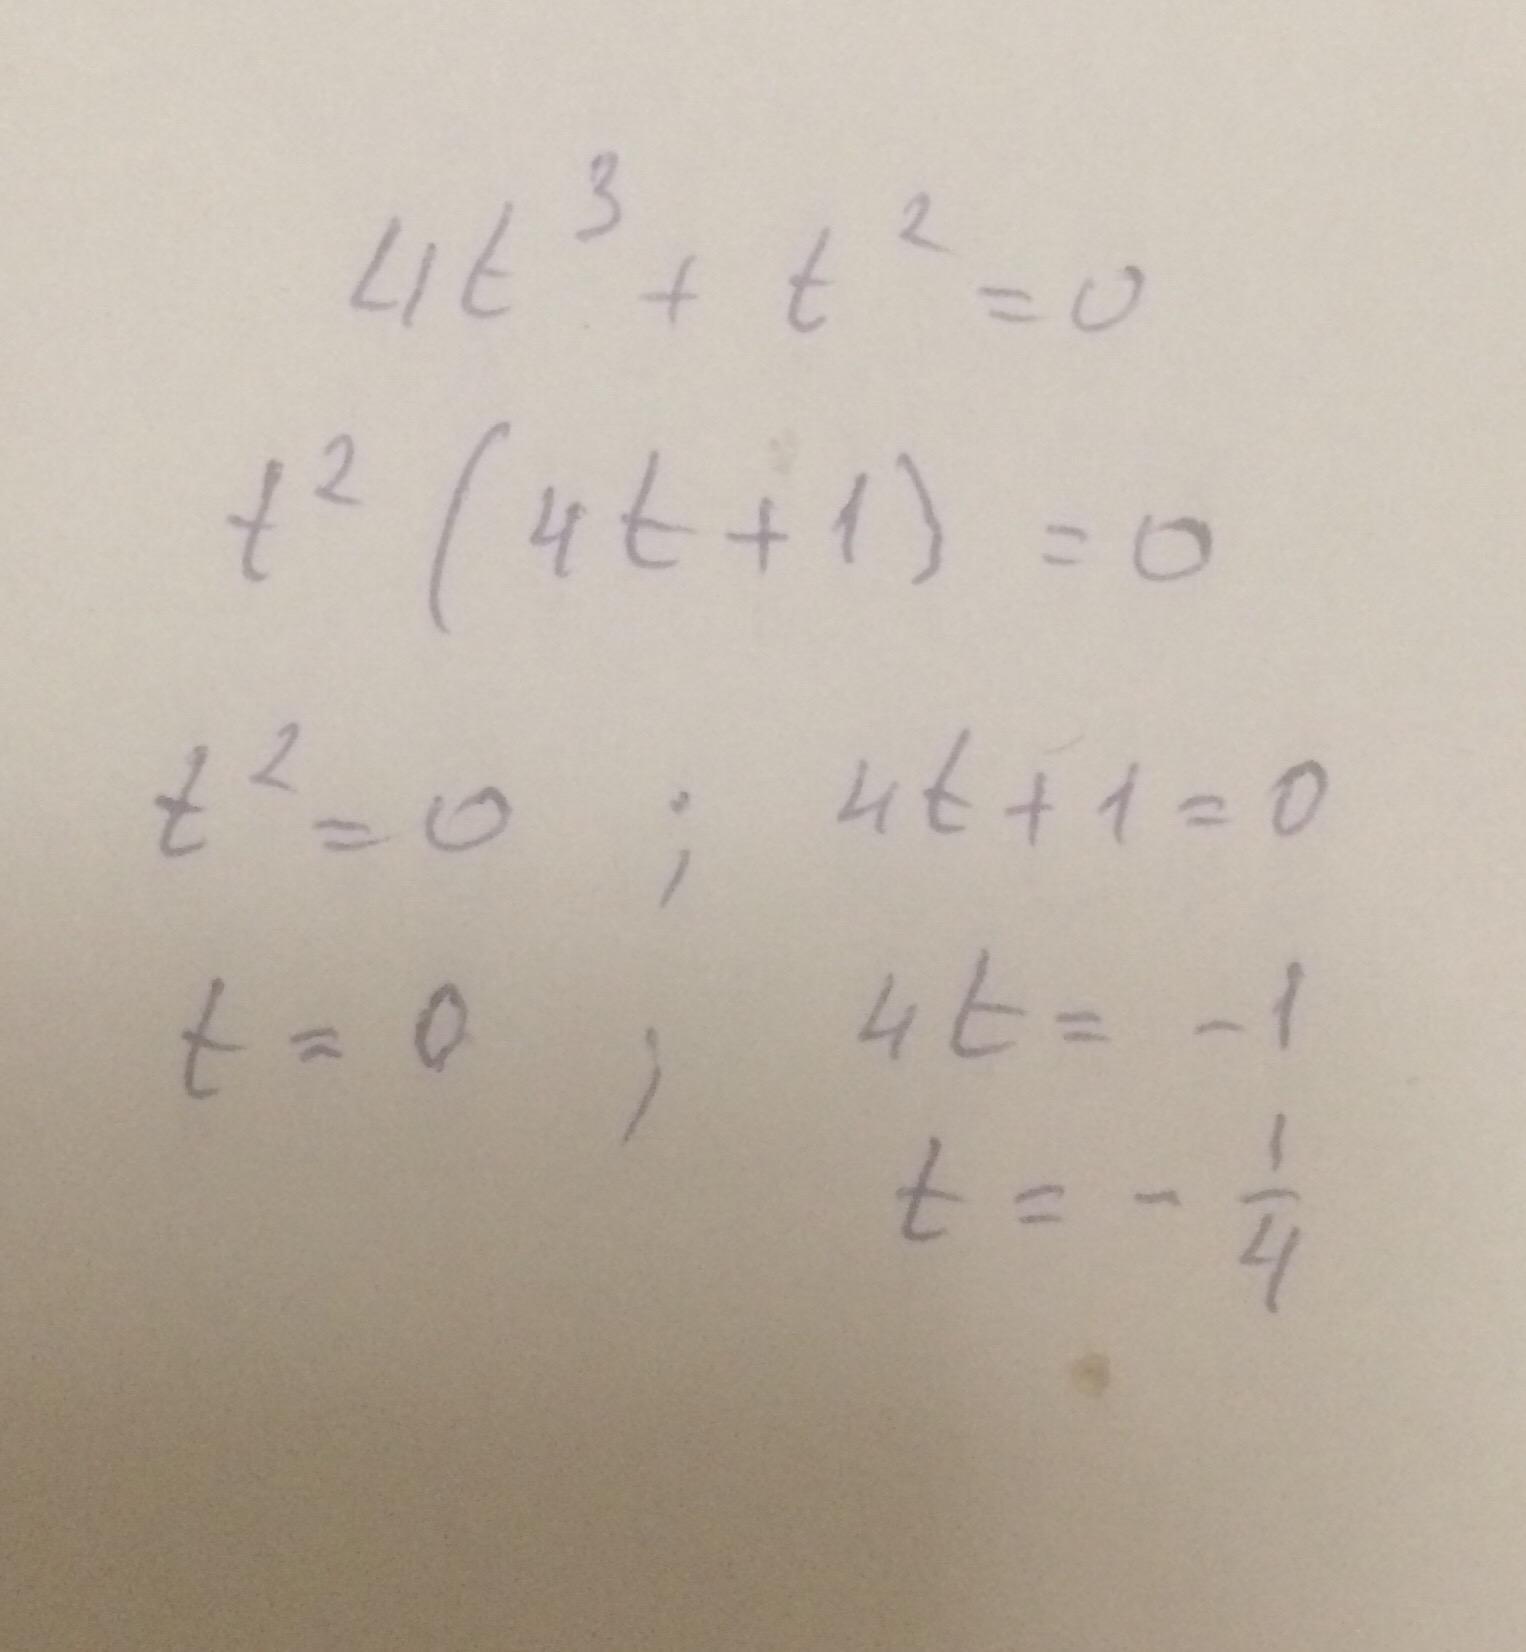 4t³ + t² = 0
t² (4t + 1) = 0
t² = 0 ; 4t + 1 = 0
t = 0 , 4t = - 1
t = - 1/4